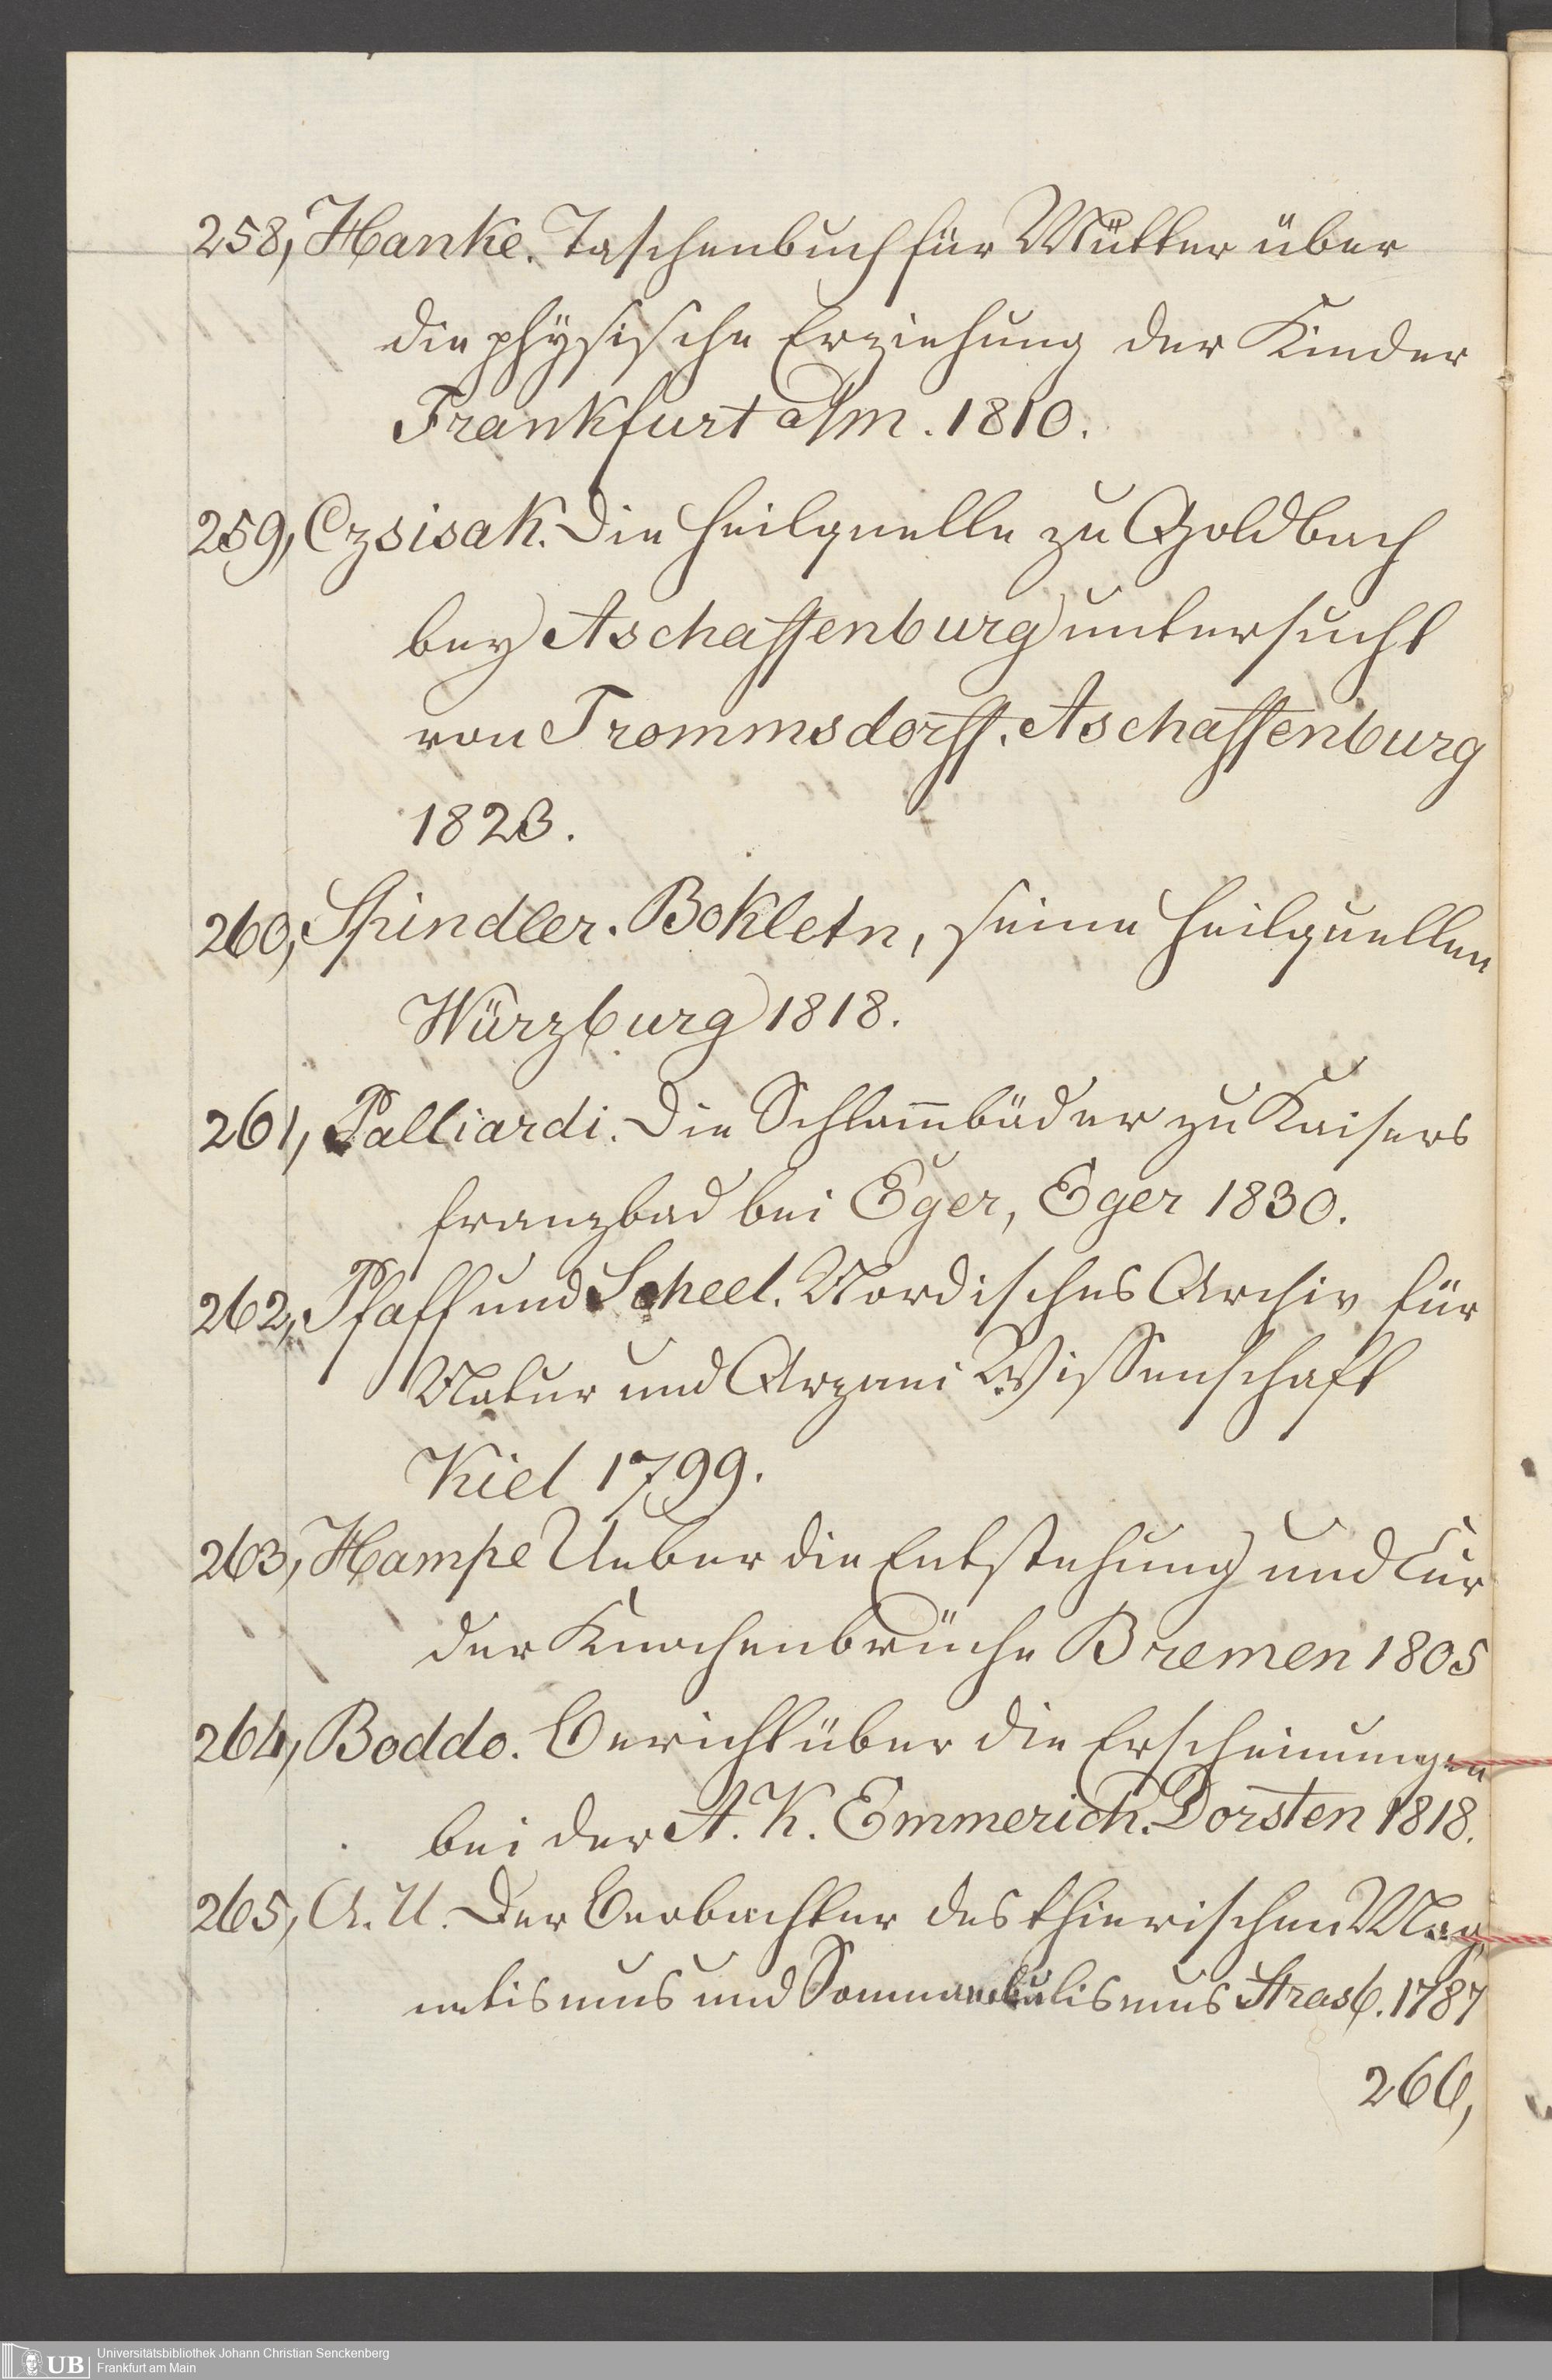 258, Hanke. Taschenbuch für Mütter über
die physische Erziehung der Kinder
Frankfurt a/m. 1810.
259, Czsisak. Die Heilquelle zu Goldbach
bey Aschaffenburg untersucht
von Trommsdorff. Aschaffenburg
1823.
260, Spindler. Bokletn, seine Heilquellen
Würzburg 1818.
261, Palliardi. Die Schlam̄bäder zu Kaisers
franzbad bei Eger, Eger 1830.
262, Pfaff und Scheel. Nordisches Archiv für
Natur und Arznei Wissenschaft
Kiel 1799.
263, Hampe Ueber die Entstehung und Cur
der Knochenbrüche Bremen 1805
264, Boddo. Bericht über die Erscheinungen
bei der A. K. Emmerich. Dorsten 1818.
265, A. U. Der Beobachter des thierischen Mag,
netismus und Somnambulismus Strasb. 1787
266,
UB Universitätsbibliothek Johann Christian Senckenberg
Frankfurt am Main